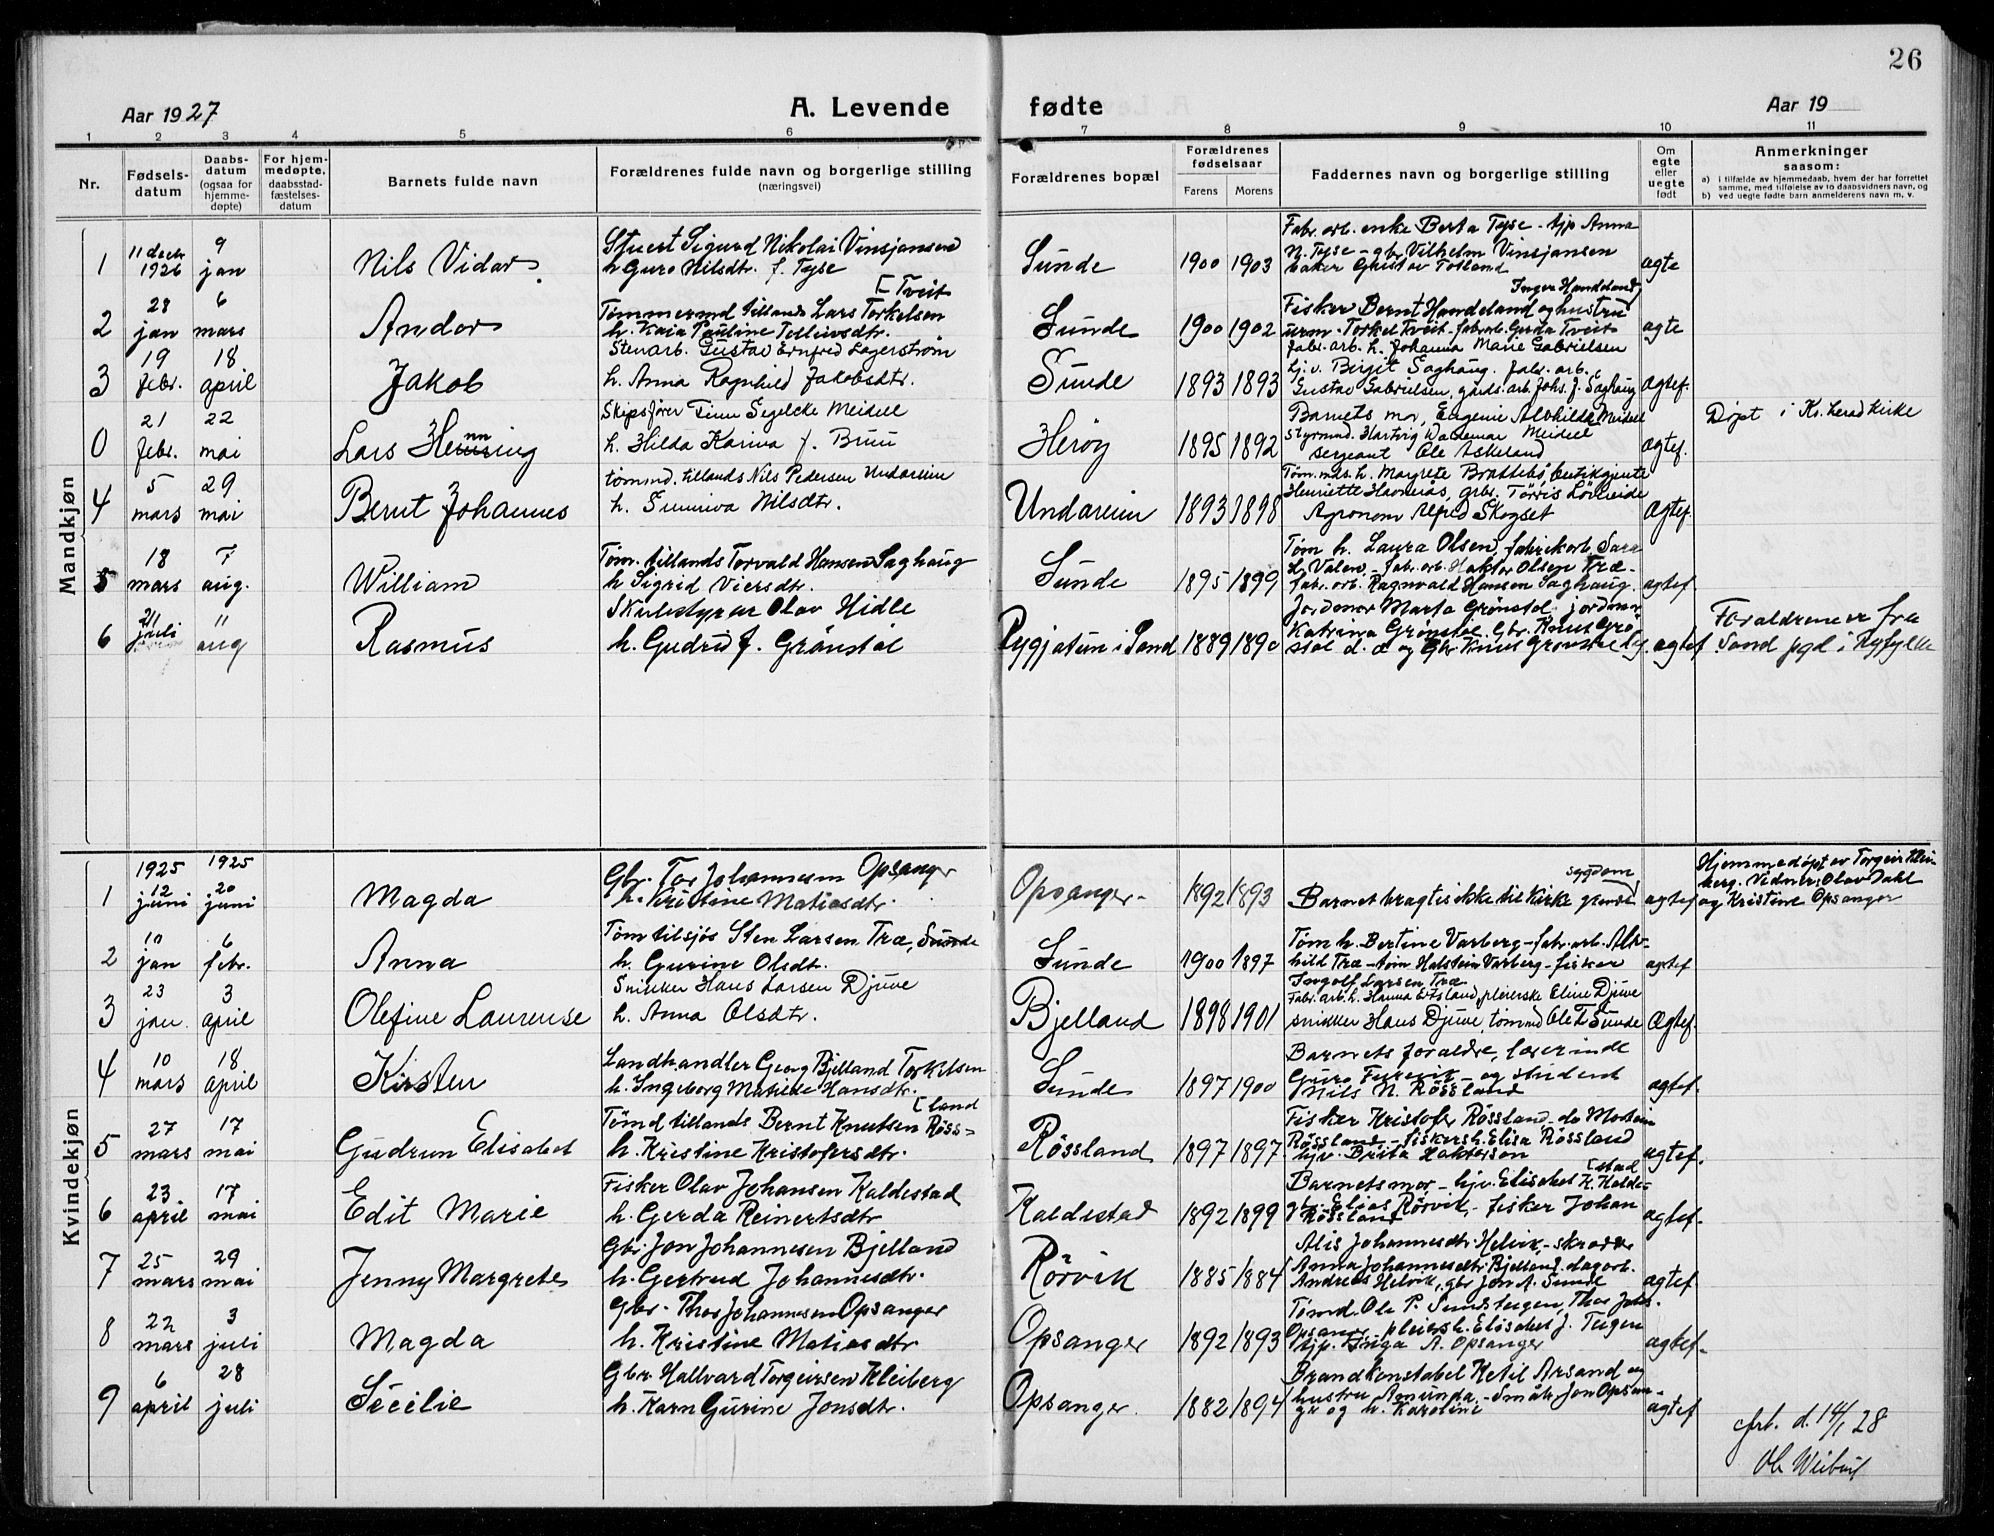 26
Aar 1927
A. Levende
fødte
Aar 19
1 2 3 4 5 6 7 8 9 10 11
Nr.
Fødsels-
datum
Daabs-
datum
(ogsaa for
hjemme-
døpte)
For hjem-
medøpte,
daabsstad-
fæstelses-
datum
Barnets fulde navn
Forældrenes fulde navn og borgerlige stilling
(næringsvei)
Forældrenes bopæl
Forældrenes
fødselsaar
Farens Morens
Faddernes navn og borgerlig stilling
Om
egte
eller
uegte
født
Anmerkninger
saasom:
a) i tilfælde av hjemmedaab, hvem der har forrettet
samme, med tilføielse av to daabsvidners navn, og
b) ved uegte fødte barn anmelderens navn m. v.
Mandkjøn
1
11 decbr
1926
9
jan
Nils Vidar
Stuert Sigurd Nikolai Vinsjansen
h. Guro Nilsdtr. f. Tyse
Sunde
1900 1903
Fabr. arb. enke Berta Tyse - tjp Anna
N. Tyse - gbr Vilhelm Vinsjansen
baker Gustav Totland
ægte
2
28
jan
6
mars
Andor
[Tveit
Tømmermd tillands Lars Torkelsen
h. Kaia Pauline Tollivsdtr.
Sunde
1900 1902
Inger Handeland
Fisker Bernt Handeland og hustru
urm. Torkel Tveit - fabrarb. Gerda Tveit
ægte
3
19
febr.
18
april
Jakob
Stenarb. Gustav Ernfred Lagerstrøm
h. Anna Ragnhild Jakobsdtr.
Sunde
1893 1893
fabr. arb. h. Johanna Marie Gabrielsen
hj. v. Birgit Saghaug. fabr. arb.
Gustav Gabrielsen, gards. arb. Johs. J. Saghaug
ægtef.
0
21
febr.
22
mai
Lars Henning
Skipsfører Finn Segelcke Meidell
h. Hilda Karina f. Bruu
Herøy
1895 1892
Barnets mor, Eugenie Alvhilde Meidell
styrmnd. Hartvig Waldemar Meidell
sergeant Ole Askeland
ægtef.
Døpt i Kv.herad kirke
4
5
mars
29
mai
Bernt Johannes
tømmd. tillands Nils Pedersen Undareim
h. Sunniva Nilsdtr.
Undareim
1893 1898
Tøm. mds. h. Margrete Brattebø, butikgjente
Henriette Havnerås, grbr. Tørris Løvlieide
Agronom Alfred Skogset
Ægtef.
5
18
mars
7
aug.
William
Tøm. tillands Torvald Hansen Saghaug
h Sigrid Viersdtr.
Sunde
1895 1899
Tøm h. Laura Olsen, fabrikarb. Sara
h Valen - fabr. arb. Haktor Olsen Træ -
fabr. arb. Ragnvald Hansen Saghaug.
ægtef.
6
21
juli
11
aug
Rasmus
Skulestyrar Olav Hidle
h. Gudrid f. Grønstøl
Rygjatun i Sand
1889 1890
Jordmor Marta Grønstøl jordmor
Katrina Grønstøl. Gbr. Knut Grø
støl d. æ og Gbr. Knut Grønstøl d.y.
ægtef
Foreldrene er fra
Sand pgd i Ryfylke
Kvindekjøn
1
1925
12
juni
1925
20
juni
Magda
Gbr. Tor Johannesen Opsanger
h. Kristine Matiasdtr.
Opsanger
1892 1893
sygdom
Barnet bragtes ikke til kirke grundet
ægtef
Hjemmedøpt av Torgeir Klei-
berg. Vidner: Olav Dahl
og Kristine Opsanger
2
10
jan
6
febr.
Anna
Tøm tilsjøs Sten Larsen Træ, Sunde
h. Gurine Olsdt.
Sunde
1900 1897
Tøm h. Bertine Varberg - fabr. arb. Alv-
hild Træ - tøm Halstein Varberg - fisker
Ingolf Larsen Træ
ægtef
3
23
jan.
3
april
Olefine Laurense
Snikker Hans Larsen Djuve
h. Anna Olsdtr.
Bjelland
1898 1901
Fabr. arb. h. Hanna Eitsland, pleierske Eline Djuve
snikker Hans Djuve, tømmd Ole T. Sunde
Ægtef.
4
10
mars
18
april
Kirsten
Landhandler Georg Bjelland Torkelsen
h. Ingeborg Matilde Hansdtr.
Sunde
1897 1900
Barnets forældre, lærerinde
Guro Furevik og student
Nils N. Røssland
ægtef.
5
27
mars
17
mai
Gudrun Elisabet
[land
Tømd tillands Bernt Knutsen Røss-
h. Kristine Kristofersdtr.
Røssland
1897 1897
Fisker Kristofer Røssland, do Mostein
Røssland - fiskersh. Elisa Røssland
hjv. Brita Haktorson
ægtef.
6
23
april
17
mai
Edit Marie
Fisker Olav Johansen Kaldestad
h. Gerda Reinertsdtr
Kaldestad
1892 1899
[stad
Barnets mor - hjv. Elisabet K. Kalde-
gbr. Elias Rørvik, - fisker Johan
Røssland
ægtef.
7
25
mars
29
mai
Jenny Margrete
Gbr. Jon Johannesen Bjelland
h. Gertrud Johannesdtr.
Rørvik
1885 1884
Alis Johannesdtr Helvik, - skrædder
Anna Johannesdtr Bjelland. dagarb.
Andreas Helvik, gbr Jon A. Sunde
ægtef.
8
22
mars
3
juli
Magda
Gbr. Thor Johannesen Opsanger
h. Kristine Matiasdtr
Opsanger
1892 1893
Tømd. Ole P. Sundsteigen, Thor Johs.
Opsanger pleiersh. Elisabet J. Teigen
tjp. Inga A. Opsanger
ægtef.
9
6
april
28
juli
Secilie
Gbr. Hallvard Torgeirsen Kleiberg
h. Karn Gurine Jonsdtr.
Opsanger
1882 1894
Brandkonstabel Ketil Arsand og
hustru Amunda. - Småbr. Jon Opsan-
ger og h. Karoline
ægtef
d. 14/1 28